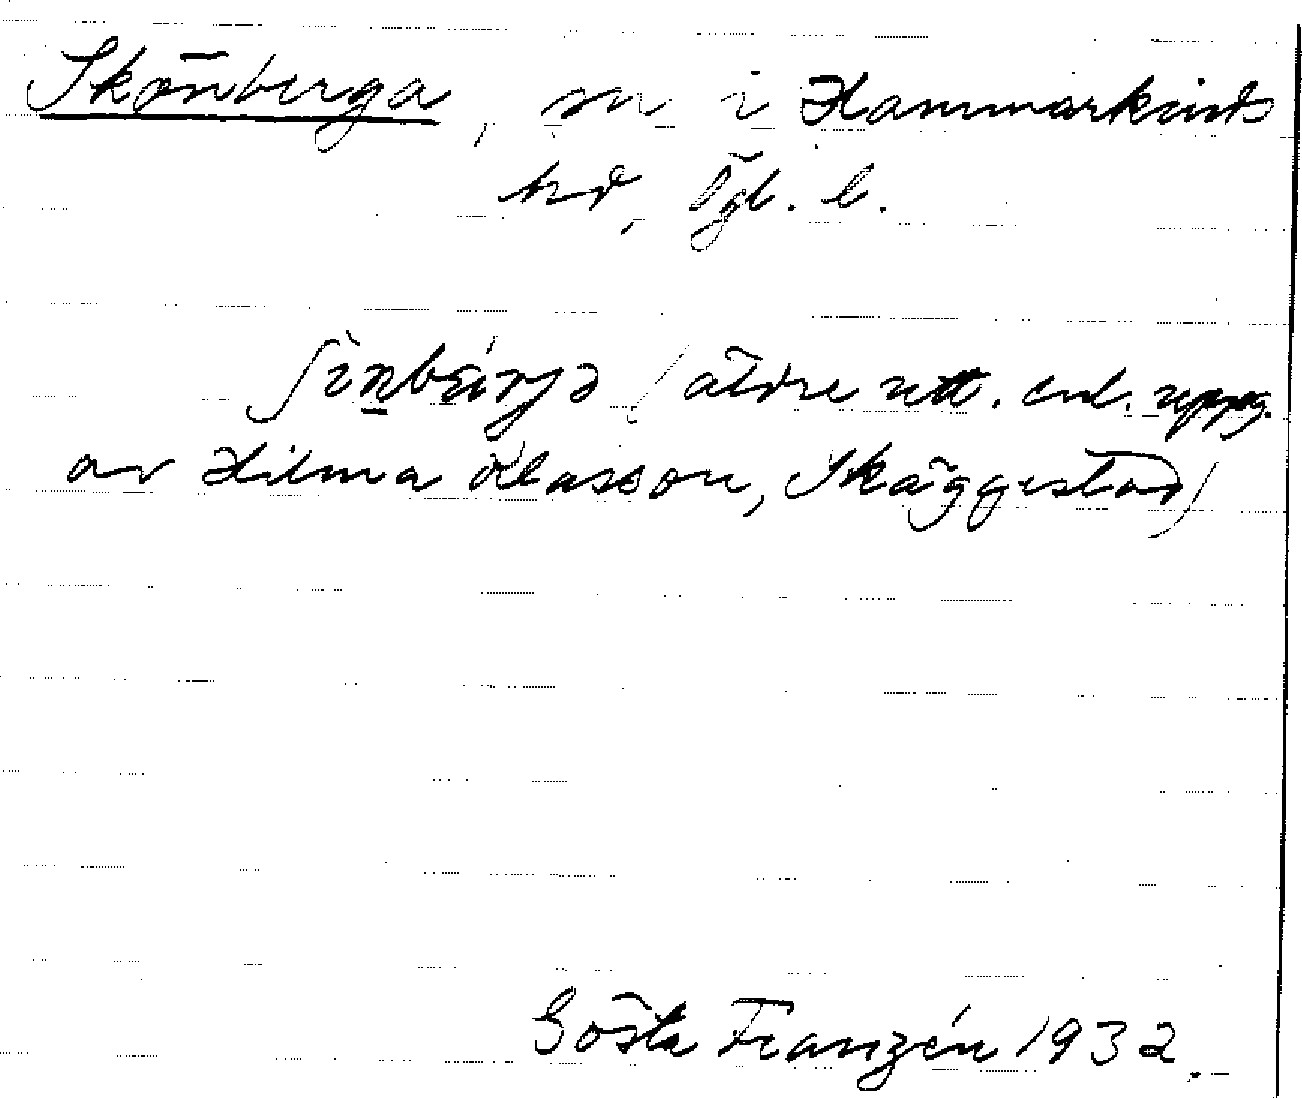 Skönberga, sn i Hammarkinds
hd, Ögl. l.
ʃìnbæ̀rjə (äldre utt. enl. uppg.
av Hilma Klasson, Skäggestad)
Gösta Franzén 1932.